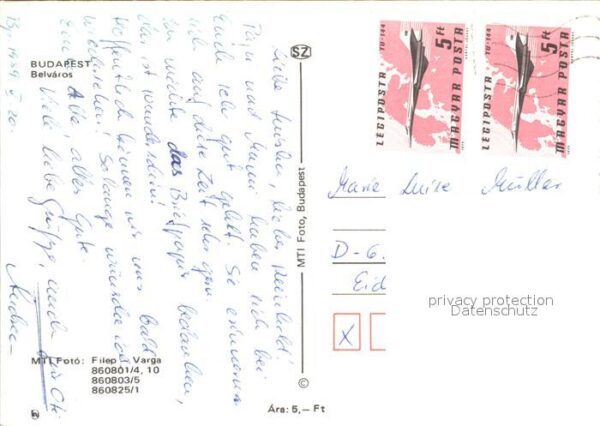 BUDAPEST
Belváros
SZ
Liebe
Papa und Mami haben sich bei
Euch sehr gut gefühlt. Sie erinnern
sich auf diese Zeit sehr gern.
Ich möchte das Briefpapier bedanken,
das ist wunderschön!
Hoffentlich können wir uns bald
wiedersehen! Solange wünsche ich
Euch Alle alles Gute
Viele liebe Grüsse, auch
Andrea
Bp. 1989. V. 20.
MTI Fotó: Filep - Varga
860801/4, 10
860803/5
860825/1
Ára: 5,— Ft
© MTI Foto, Budapest
LÉGIPOSTA TU-144
5 Ft
MAGYAR POSTA
LÉGIPOSTA TU-144
5 Ft
MAGYAR POSTA
Marie Luise Müller
D-6.
Eid
X
privacy protection
Datenschutz